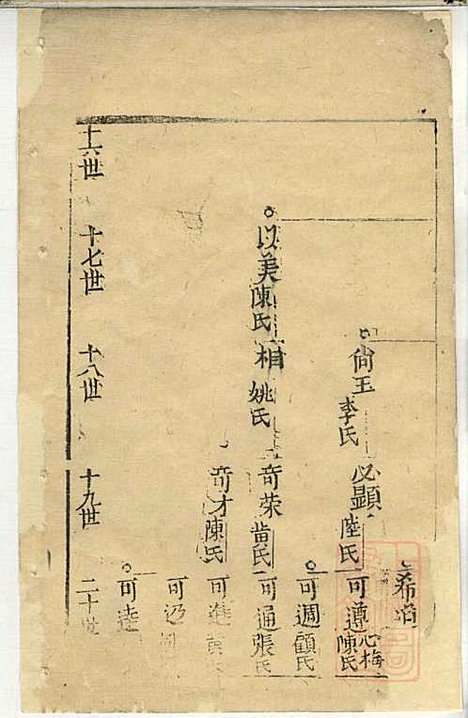 希
尙玉 李氏 必顯 陸氏 可遵 陳氏 心梅
可週 顧氏
以美 陳氏 相 姚氏 奇荣 黄氏 可通 張氏
奇才 陳氏 可進
可
可逵
十六世 十七世 十八世 十九世 二十世